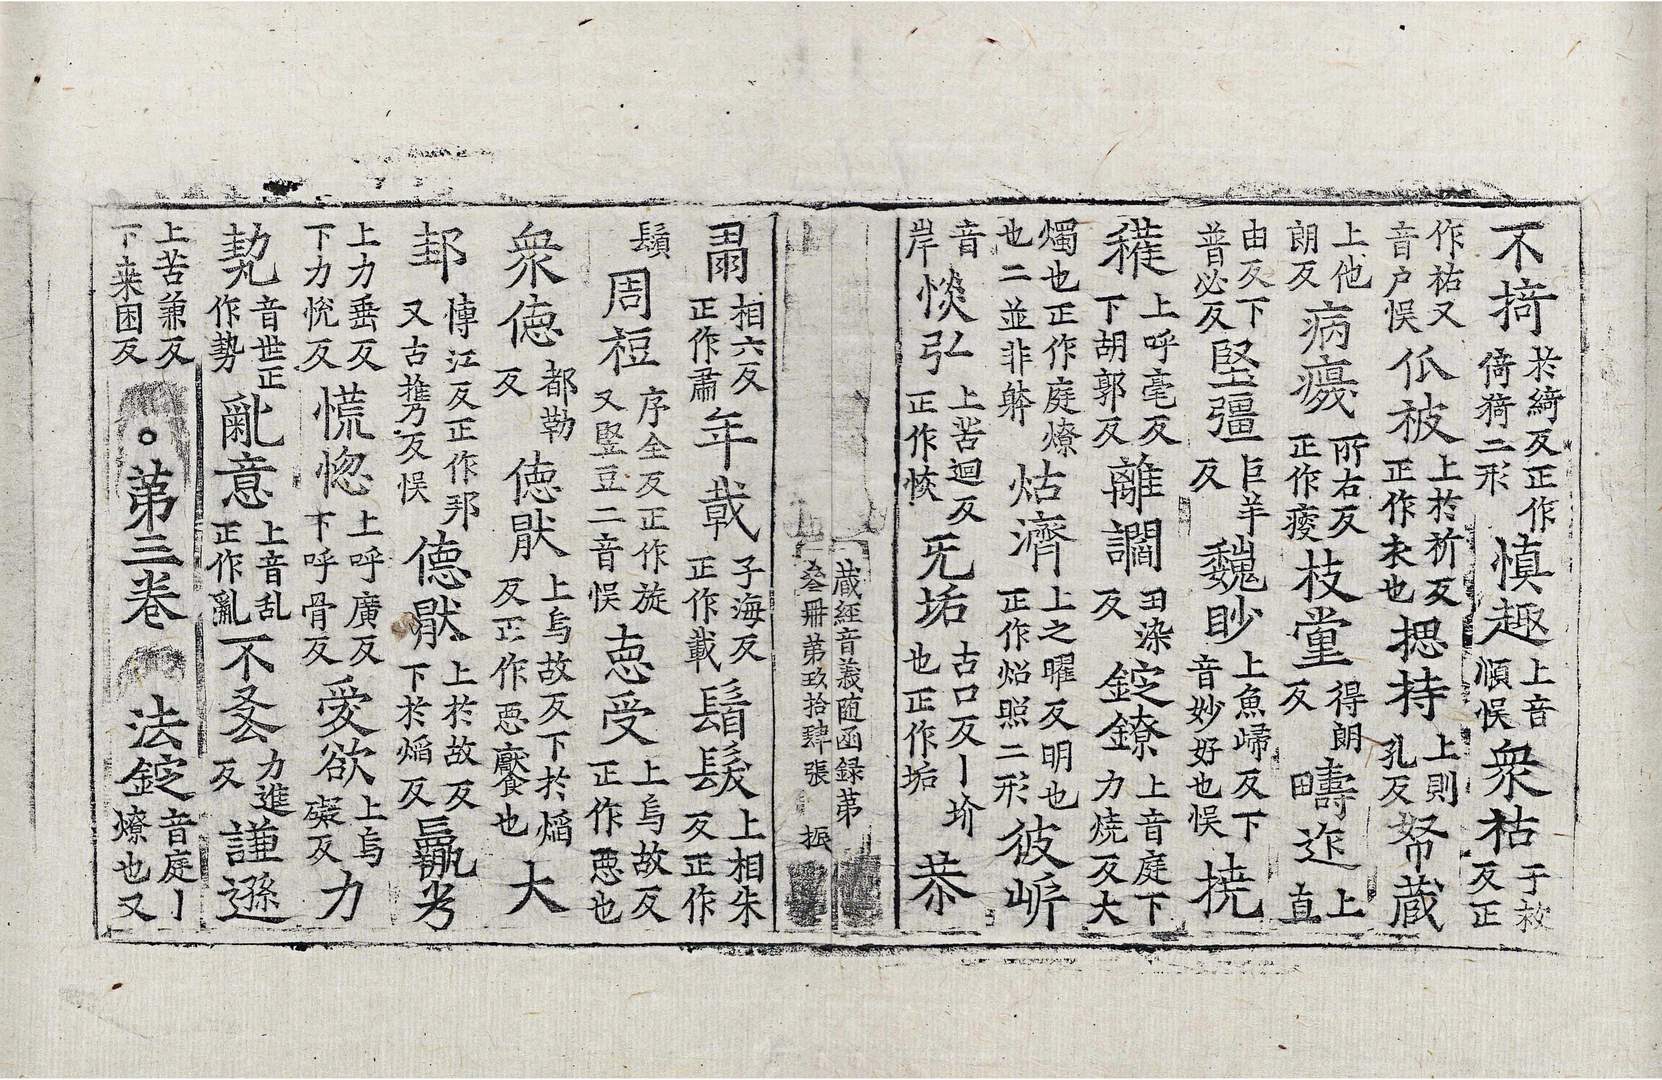 不掎於綺反正作倚猗二形慎趣上音順悮衆祜于救反正
作祐又音户悮被上於祈反正作衣也摁持上則孔反帑蔵
上他朗反病所右反正作瘦枝堂得朗反疇迮上直
由反下普必反堅彊巨羊反魏眇上魚歸反下音妙好也悮撓
穫上呼毫反下胡郭反離讇丑染反錠鐐上音庭下力燒反大
燭也正作庭燎也二並非躰炶濟上之曜反明也正作炤照二形彼㟁
音岸惔弘上苦迴反正作恢旡垢古口反丨坋也正作垢恭
蔵經音義随函録苐
叄冊苐玖拾肆張 振
粛相六反正作肅年戟子海反正作載鬚髮上相朱反正作
鬚周䄈序全反正作旋又竪豆二音悮㤅受上烏故反正作惡也
衆徳都勒反徳猒上烏故反下於焰反正作惡饜也大
邽博江反正作邦又古攜反悮徳猒上於故反下於焰反羸劣
上力垂反下力恱反慌惚上呼廣反下呼骨反愛欲上烏礙反力
㔟音世正作勢亂意上音乱正作亂不吝力進反謹遜
上苦兼反下来困反。苐三卷 法錠音庭丨燎也又